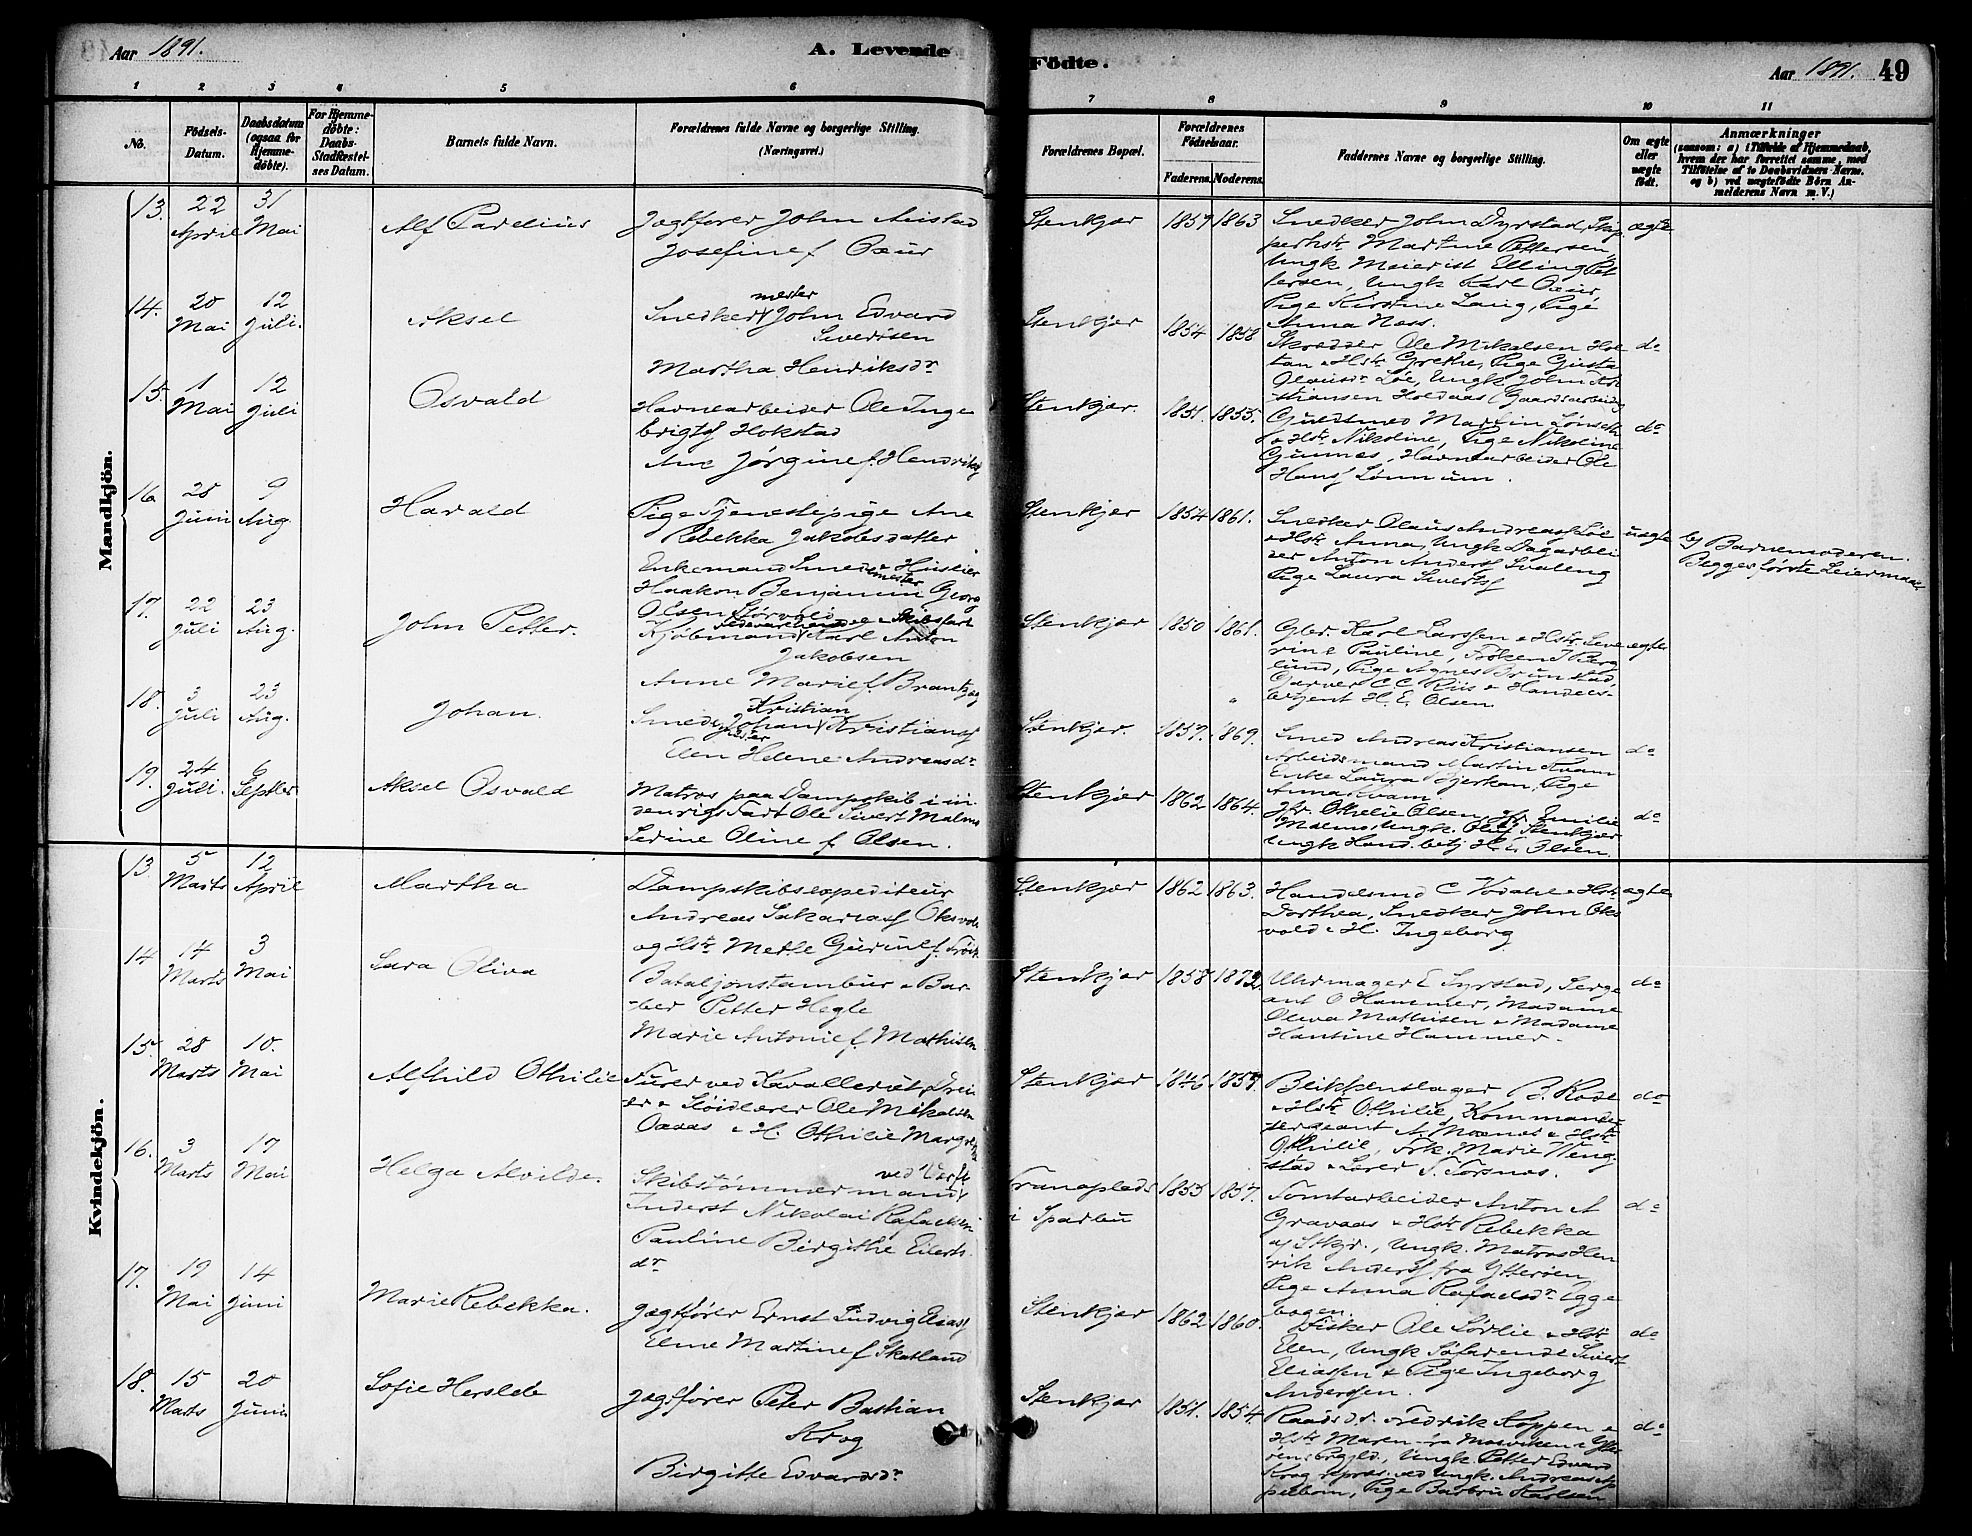 Aar 1891.
A. Levende
Födte.
Aar 1891.
49
1 2 3 4 5 6 7 8 9 10 11
No.
Födsels-
Datum.
Daabsdatum
(ogsaa for
Hjemme-
døbte).
For Hjemme-
døbte:
Daabs-
Stadfæstel-
ses Datum.
Barnets fulde Navn.
Forældrenes fulde Navne og borgerlige Stilling.
(Næringsvei.)
Forældrenes Bopæl.
Forældrenes
Födselsaar.
Faderens. Moderens.
Faddernes Navne og borgerlige Stilling.
Om ægte
eller
uægte
født.
Anmærkninger
(saasom: a) i Tilfælde af Hjemmedaab,
hvem der har forrettet samme, med
Tilføielse af to Daabsvidners Navne,
og b) ved uægtefødte Børn An-
melderens Navn m. V.)
Mandkjön.
13. 22 April 31 Mai
Alf Parelius
Jagtfører John
Josefine f.
Stenkjær 1857 1863
Snedker John Dyrstad, Skip-
perhstr Martine Pettersen
Ungk Meierist Elling Pet-
tersen, Ungk Karl
Pige Kirstine Laug, Pige
Anna Næss.
ægte
14. 20 Mai 12 Juli.
Aksel
Snedkermester John Edvard
Sivertsen
Martha Henriksdr
Stenkjær 1854 1858
Skrædder Ole Mikalsen Hof-
tan & Hstr Grethe, Pige Gusta
Olausdr Løe, Ungk John Kri-
stiansen Holdaas (Gaardsarbeider
do
15. 1 Mai 12 Juli
Osvald
Havnearbeider Ole Inge
brigtsf Hokstad
Ane Jørgine f. Hendriks
Stenkjær. 1851. 1855.
Guldsmed Martin Lønseth
& Hstr Nikoline, Pige Nikoline
Gunnes, Havnearbeider Ole
Hansf
do
16 28 Juni 9 Aug.
Harald
Pige Tjenestepige Ane
Rebekka Jakobsdatter
Enkemand Smedemester & Huseier
Haakon Benjamin Georg
Olsen
Stenkjær 1854 1861.
Snedker Olaus Andreasf Løe
& Hstr Anna, Ungk Dagarbei
der Anton Andersf Svaleng
Pige Laura Sivertsf
uægte
b) Barnemoderen.
Begges første Leiermaal
17. 22 Juli 23 Aug.
John Petter.
Kjøbmand Karl Anton
Jakobsen
Anne Marie f. Brantzæg
Stenkjær 1850 1861.
Gbr. Karl Larssen & Hstr Seve
rine Pauline, Frøken J Berg
lund, Pige Agnes Brunstad
Garver C C Riis & Handels-
betjent H. E. Olsen.
ægte
18. 3 Juli 23 Aug.
Johan.
Johan Kristian Kristiansf
Elen Helene Andreasdr
Stenkjær. 1857. 1869.
Smed Andreas Kristiansen
Arbeidsmand Martin Kvam
Enke Laura Bjerkan, Pige
Anna Kvam.
do
19. 24 Juli. 6 Septbr
Aksel Osvald
Matros paa Dampskib i in-
denrigs Fart Ole Sivert Malmo
Serine Oline f. Olsen.
Stenkjær 1862 1864.
Jfr. Othelie Olsen, Jfr. Emilie
Malmo, Ungk. Olaf Stenkjær
Ungk Hand. betj H. E. Olsen.
do
Kvindekjön.
13 5 Marts 12 April
Martha
Dampskibsexpediteur
Andreas Sakariasf
og Hstr Mette Gurine f.
Stenkjær 1862 1863.
Handelsmd C Vodahl & Hstr
Dorthea, Snedker John Oks
vold & H. Ingeborg
ægte
14 14 Marts 3 Mai
Sara Oliva
Bataljonstambur & Bar-
ber Petter Hegle
Marie Antonie f. Mathisen
Stenkjær 1858 1872.
Uhrmager E Syrstad, Serge
ant O Hammer, Madame
Oliva Mathisen & Madame
Hantine Hammer.
do
15. 28 Marts 10. Mai
Alfhild Othilie
Furer ved Kavalleriet, Drei
er & Sløidlærer Ole Mikalsen
Oxaas & H. Othilie Margrethe
Stenkjær 1846 1857.
Blikkenslager B. Rose
& Hstr Othilie, Kommander-
sergeant A Moenes & Hstr
Othilie, Frk. Marie Weng-
stad & Lærer T. Torsnes.
do
16. 3 Marts 17 Mai
Helga Alvilde.
Skibstømmermand ved Værft
Inderst Nikolai Rafaelsen
Pauline Birgithe Eilerts
dr
Tranaplads
i Sparbu
1855 1857.
Tomtarbeider Anton A
Gravaas & Hstr Rebekka
af Stkjr., Ungk. Matros Hen
rik Andersf fra Ytterøen
Pige Anna Rafaelsdr Egge
bogen.
do
17. 19 Mai 14 Juni
Marie Rebekka.
Jagtfører Ernst Ludvig Eliasf
Elme Martine f. Skatland
Stenkjær 1862 1860.
Fisker Ole Sørlie & Hstr
Elen, Ungk Søfarende Sivert
Eliassen & Pige Ingeborg
Anderssen.
do
18. 15 Marts 20 Juni
Sofie Herslde
Jagtfører Peter Bastian
Krog
Birgitte Edvardsdr
Stenkjær 1851. 1854.
Fredrik Koppen &
Hstr Maren fra Mosviken i Ytte
røens Prgjld., Ungk. Petter Edvard
Krog Ungk. Andreas Ap
pelbom, Pige Barbru Karlsen
do